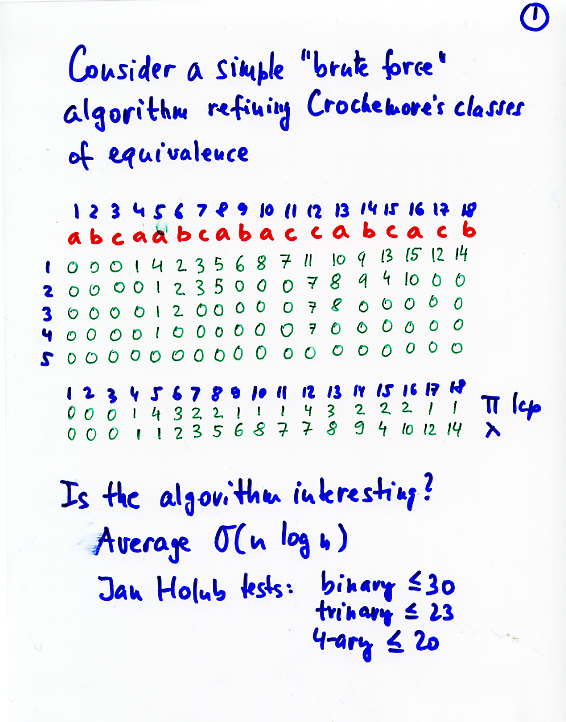 1
Consider a simple "brute force"
algorithm refining Crochemore's classes
of equivalence
1 2 3 4 5 6 7 8 9 10 11 12 13 14 15 16 17 18
a b c a a b c a b a c c a b c a c b
1 0 0 0 1 4 2 3 5 6 8 7 11 10 9 13 15 12 14
2 0 0 0 0 1 2 3 5 0 0 0 7 8 9 4 10 0 0
3 0 0 0 0 1 2 0 0 0 0 0 7 8 0 0 0 0 0
4 0 0 0 0 1 0 0 0 0 0 0 7 0 0 0 0 0 0
5 0 0 0 0 0 0 0 0 0 0 0 0 0 0 0 0 0 0
1 2 3 4 5 6 7 8 9 10 11 12 13 14 15 16 17 18
0 0 0 1 4 3 2 2 1 1 1 4 3 2 2 2 1 1 π lcp
0 0 0 1 1 2 3 5 6 8 7 7 8 9 4 10 12 14 λ
Is the algorithm interesting?
Average O(n log n)
Jan Holub tests: binary ≤ 30
trinary ≤ 23
4-ary ≤ 20